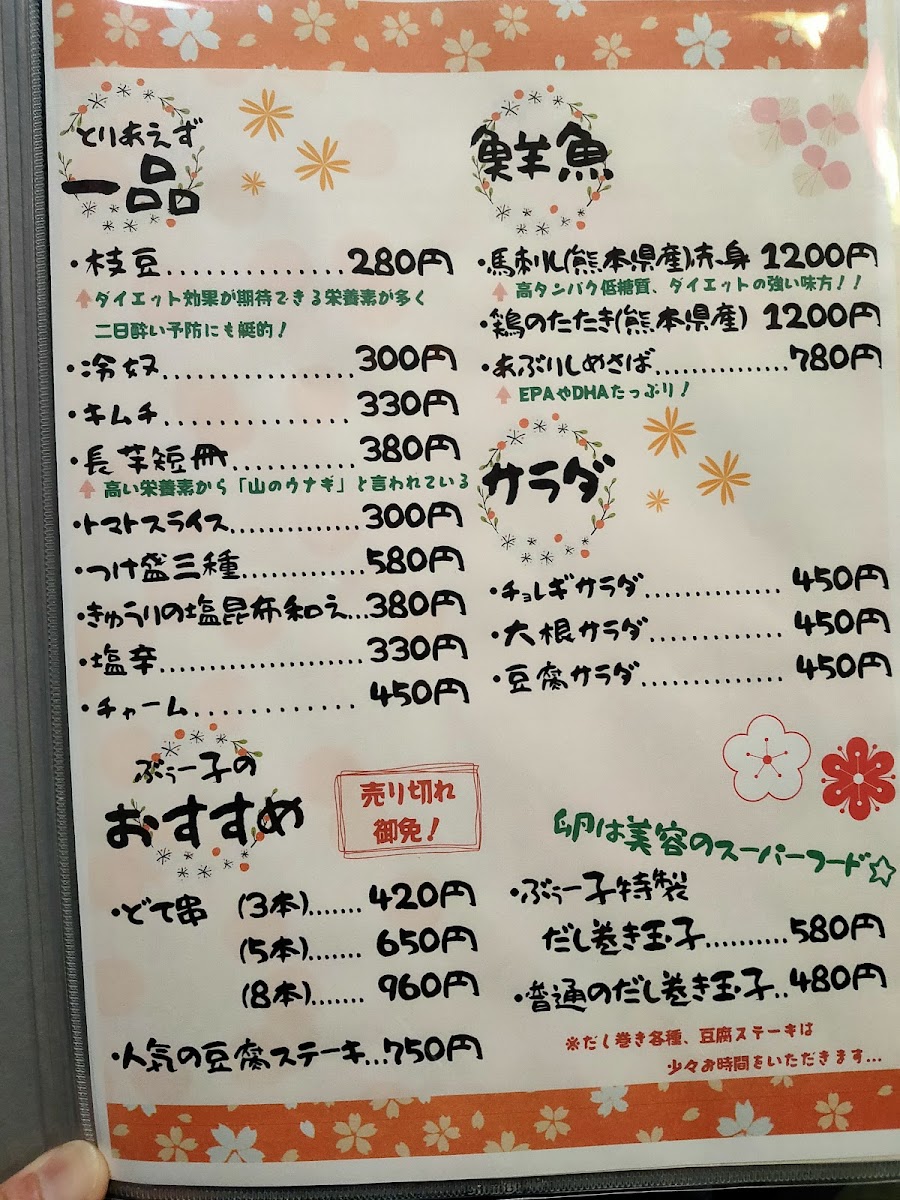 とりあえず
一品
・枝豆..............280円
ダイエット効果が期待できる栄養素が多く
二日酔い予防にも艇的！
・冷奴..................300円
・キムチ..............330円
・長芋短冊..........380円
高い栄養素から「山のウナギ」と言われている
・トマトスライス............300円
・つけ盛三種............580円
・きゅうりの塩昆布和え...380円
・塩辛....................330円
・チャーム..............450円
ぶぅー子の
おすすめ
売り切れ
御免！
・どて串 (3本).......420円
(5本)....... 650円
(8本)....... 960円
・人気の豆腐ステーキ...750円
鮮魚
・馬刺し(熊本県産)赤身 1200円
高タンパク低糖質、ダイエットの強い味方！！
・鶏のたたき(熊本県産) 1200円
・炙ぶりしめさば...............780円
EPAやDHAたっぷり！
サラダ
・チョレギサラダ..............450円
・大根サラダ..............450円
・豆腐サラダ...............450円
卵は美容のスーパーフード☆
・ぶぅー子特製
だし巻き玉子..........580円
・普通のだし巻き玉子..480円
※だし巻き各種、豆腐ステーキは
少々お時間をいただきます...